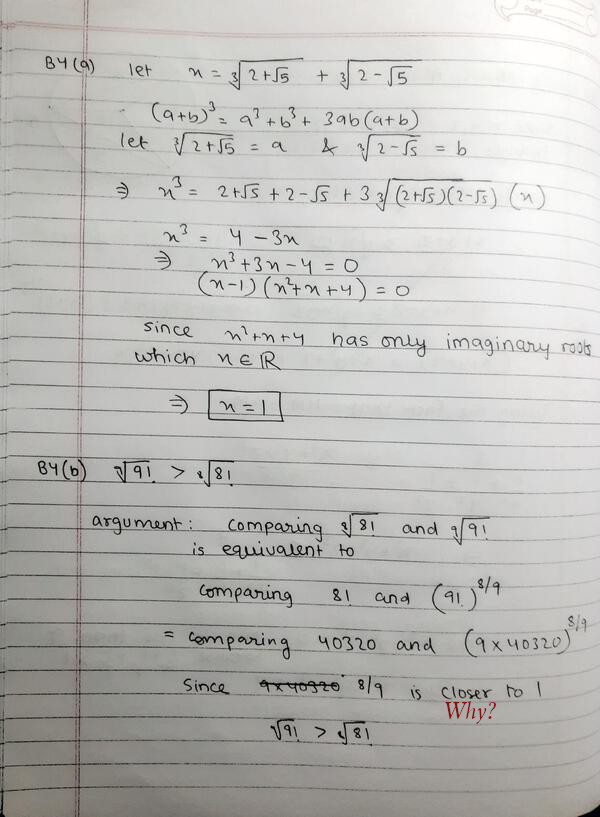 Page
B4(a) let x = ∛(2+√5) + ∛(2-√5)
(a+b)³ = a³+b³+ 3ab(a+b)
let ∛(2+√5) = a & ∛(2-√5) = b
⇒ x³ = 2+√5 + 2-√5 + 3∛((2+√5)(2-√5)) (x)
x³ = 4 - 3x
⇒ x³+3x-4 = 0
(x-1) (x²+x+4) = 0
since x²+x+4 has only imaginary roots
which x ∈ ℝ
⇒ x = 1
B4(b) ⁹√9! > ⁸√8!
argument: comparing ⁸√8! and ⁹√9!
is equivalent to
comparing 8! and (9!)^8/9
= comparing 40320 and (9×40320)^8/9
Since 9×40320 8/9 is closer to 1
Why?
⁹√9! > ⁸√8!